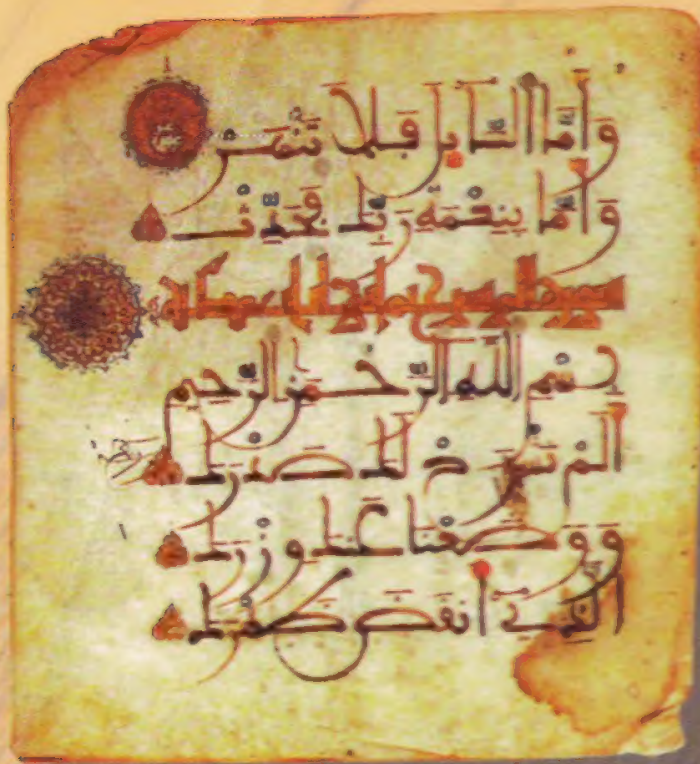 وَأَمَّا السَّايِلَ فَلَا تَنْهَرْ
وَأَمَّا بِنِعْمَةِ رَبِّكَ فَحَدِّثْ
سورة الم نشرح
بِسْمِ اللَّهِ الرَّحْمَنِ الرَّحِيمِ
أَلَمْ نَشْرَحْ لَكَ صَدْرَكَ
وَوَضَعْنَا عَنكَ وِزْرَكَ
الَّذِي أَنقَضَ ظَهْرَكَ